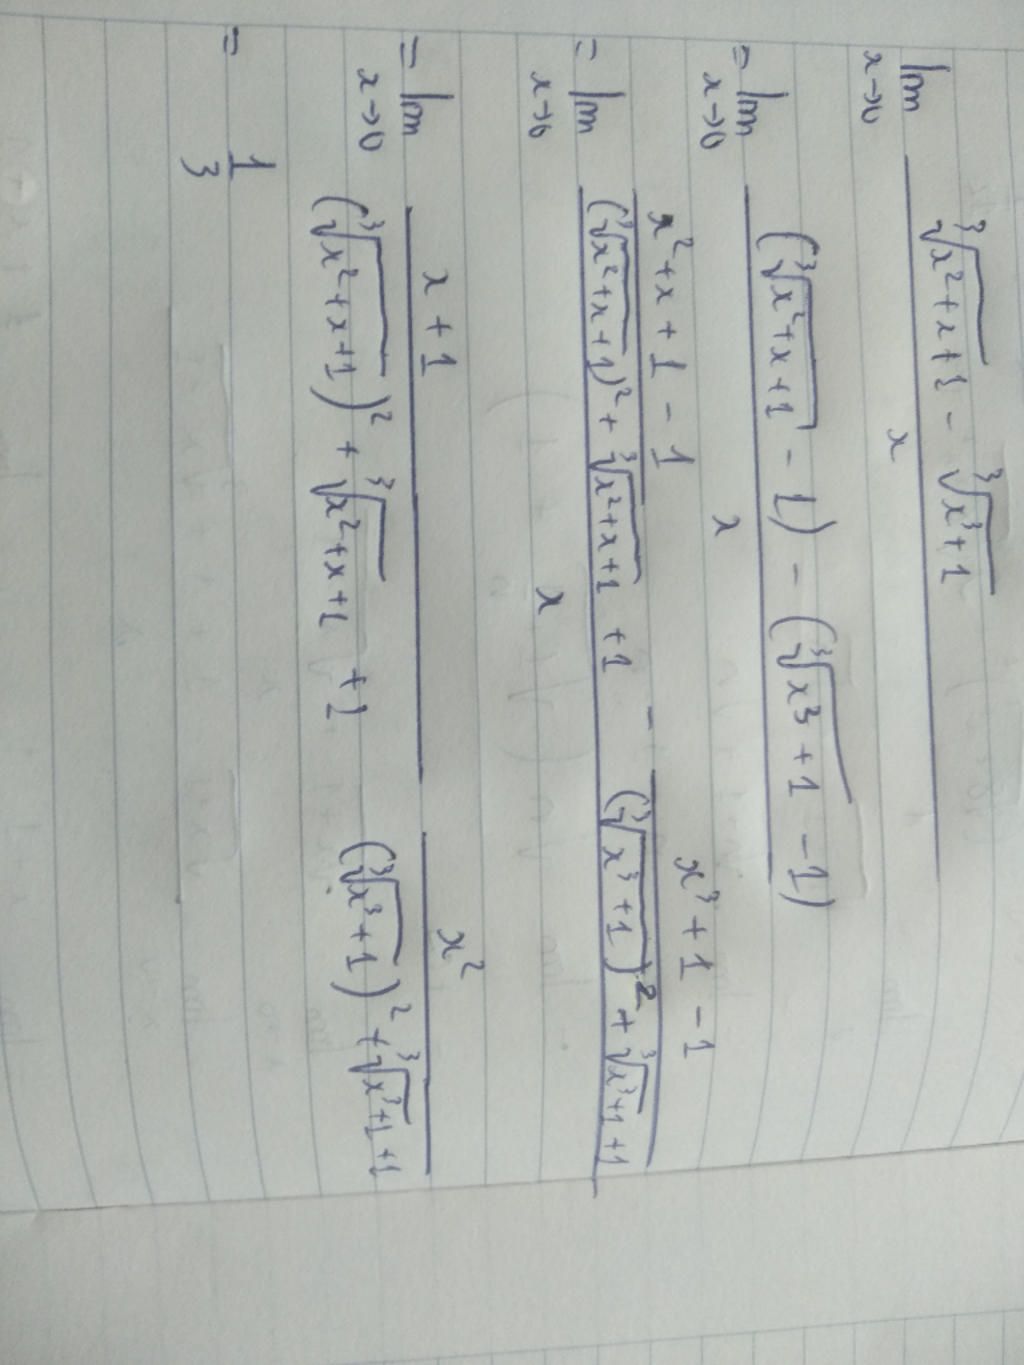 lim x→0 (∛(x²+x+1) - ∛(x³+1)) / x
= lim x→0 ((∛(x²+x+1) - 1) - (∛(x³+1) - 1)) / x
= lim x→0 ((x²+x+1-1) / ((∛(x²+x+1))² + ∛(x²+x+1) + 1) - (x³+1-1) / ((∛(x³+1))² + ∛(x³+1) + 1)) / x
= lim x→0 (x+1) / ((∛(x²+x+1))² + ∛(x²+x+1) + 1) x² / ((∛(x³+1))² + ∛(x³+1) + 1)
= 1/3